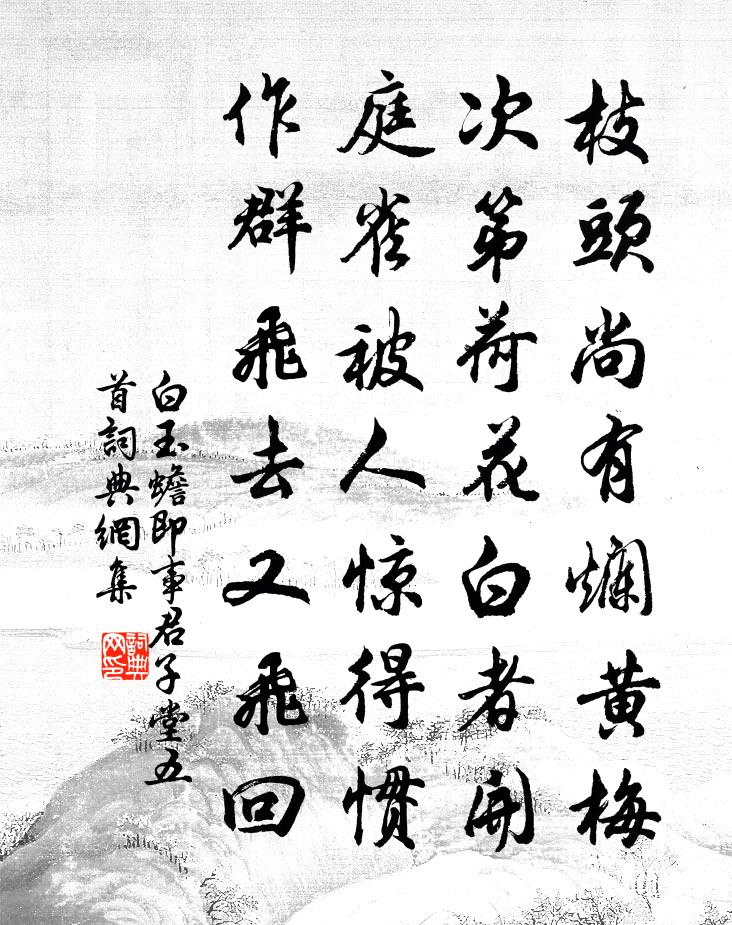 枝頭尚有爛黄梅
次第荷花白者開
庭雀被人惊得慣
作群飛去又飛回
白玉蟾即事君子堂五
首詞典網集
詞典网印